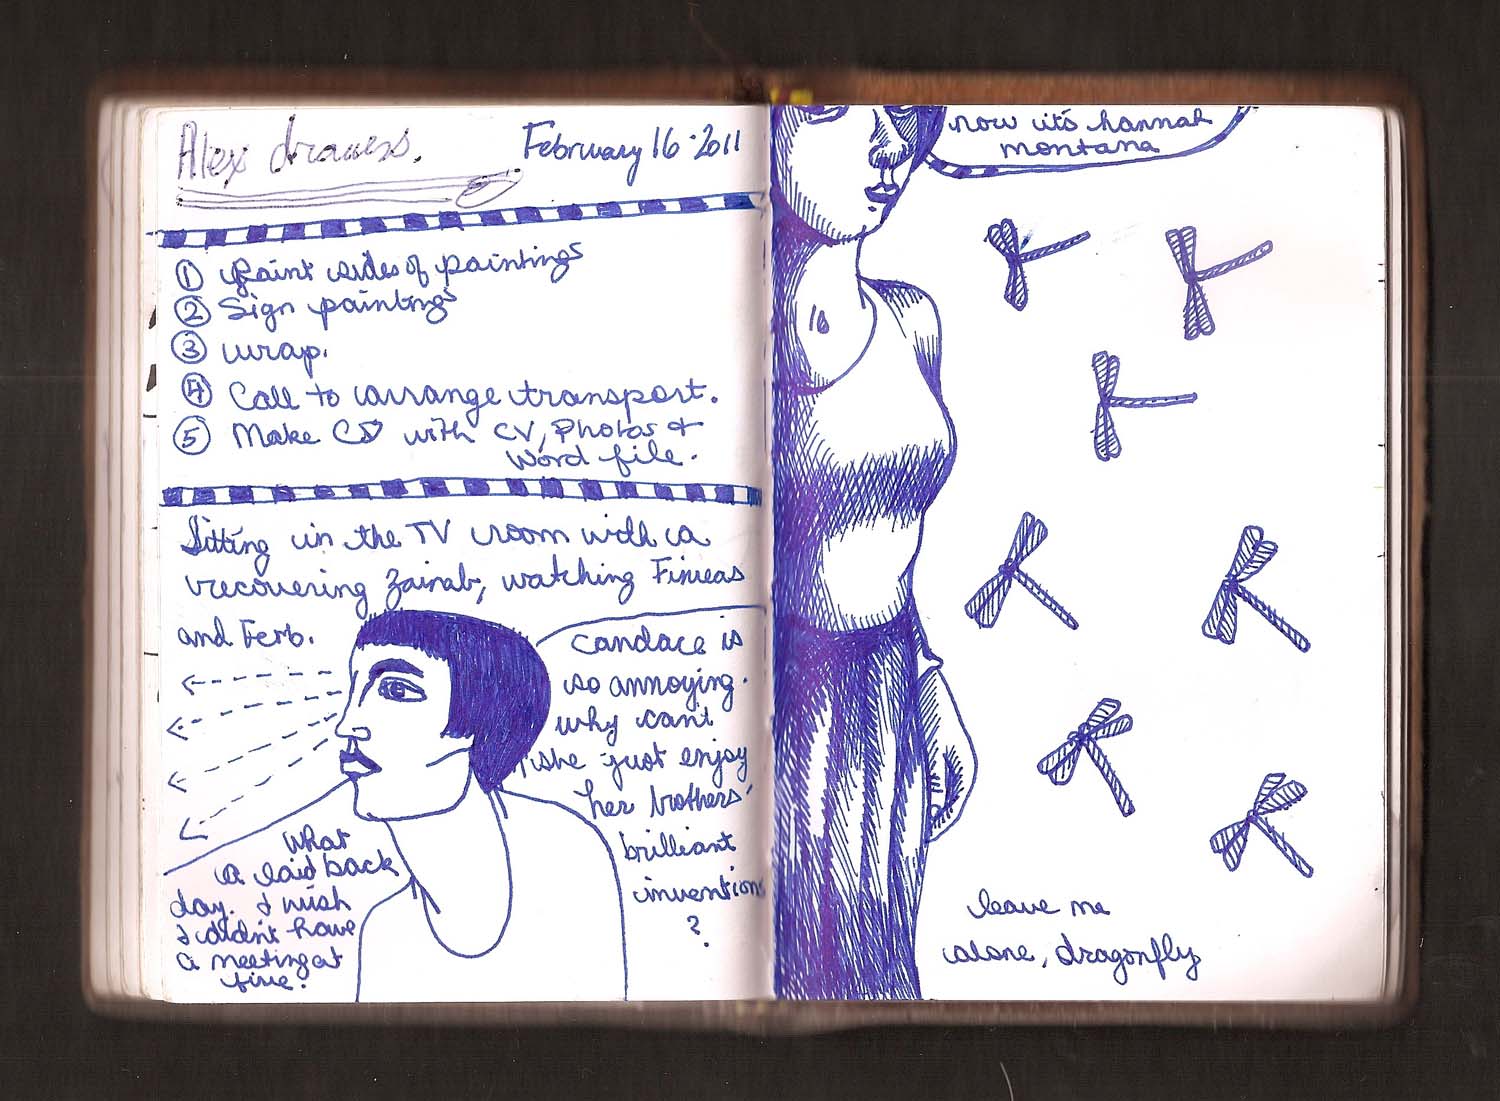 Alex draws.
February 16·2011
① Paint sides of paintings
② Sign paintings
③ wrap.
④ Call to arrange transport.
⑤ Make CD with CV, Photos +
Word file.
Sitting in the TV room with a
recovering Zainab, watching Fineas
and Ferb.
Candace is
so annoying.
why can't
she just enjoy
her brothers'
brilliant
inventions
?
What
a laid back
day. I wish
I didn't have
a meeting at
five.
now it's hannah
montana
16
leave me
alone, dragonfly